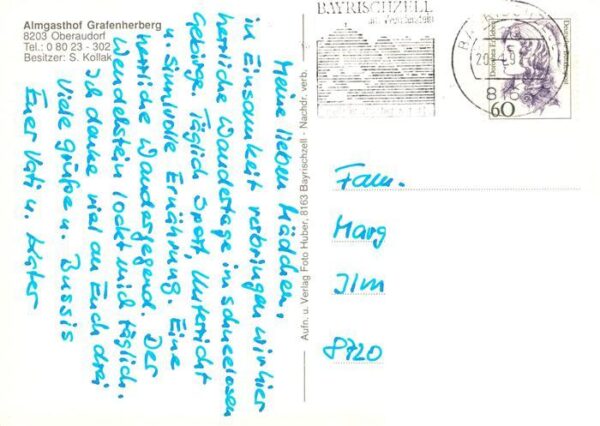 Almgasthof Grafenherberg
8203 Oberaudorf
Tel.: 0 80 23 - 302
Besitzer: S. Kollak
Meine lieben Mädchen,
in Einsamkeit verbringen wir hier
herrliche Wandertage in schneelosen
Gebirge. Täglich Sport, Unterricht
u. sinnvolle Ernährung. Eine
herrliche Wandergegend. Der
Wendelstein lockt mich täglich.
Ich denke viel an Euch drei
Viele Grüße u. Bussis
Euer Vati u.
Aufn. u. Verlag Foto Huber, 8163 Bayrischzell - Nachdr. verb.
BAYRISCHZELL
am Wendelstein
Deutsche Bundespost
60
Fam.
Marg
Ilm
8720